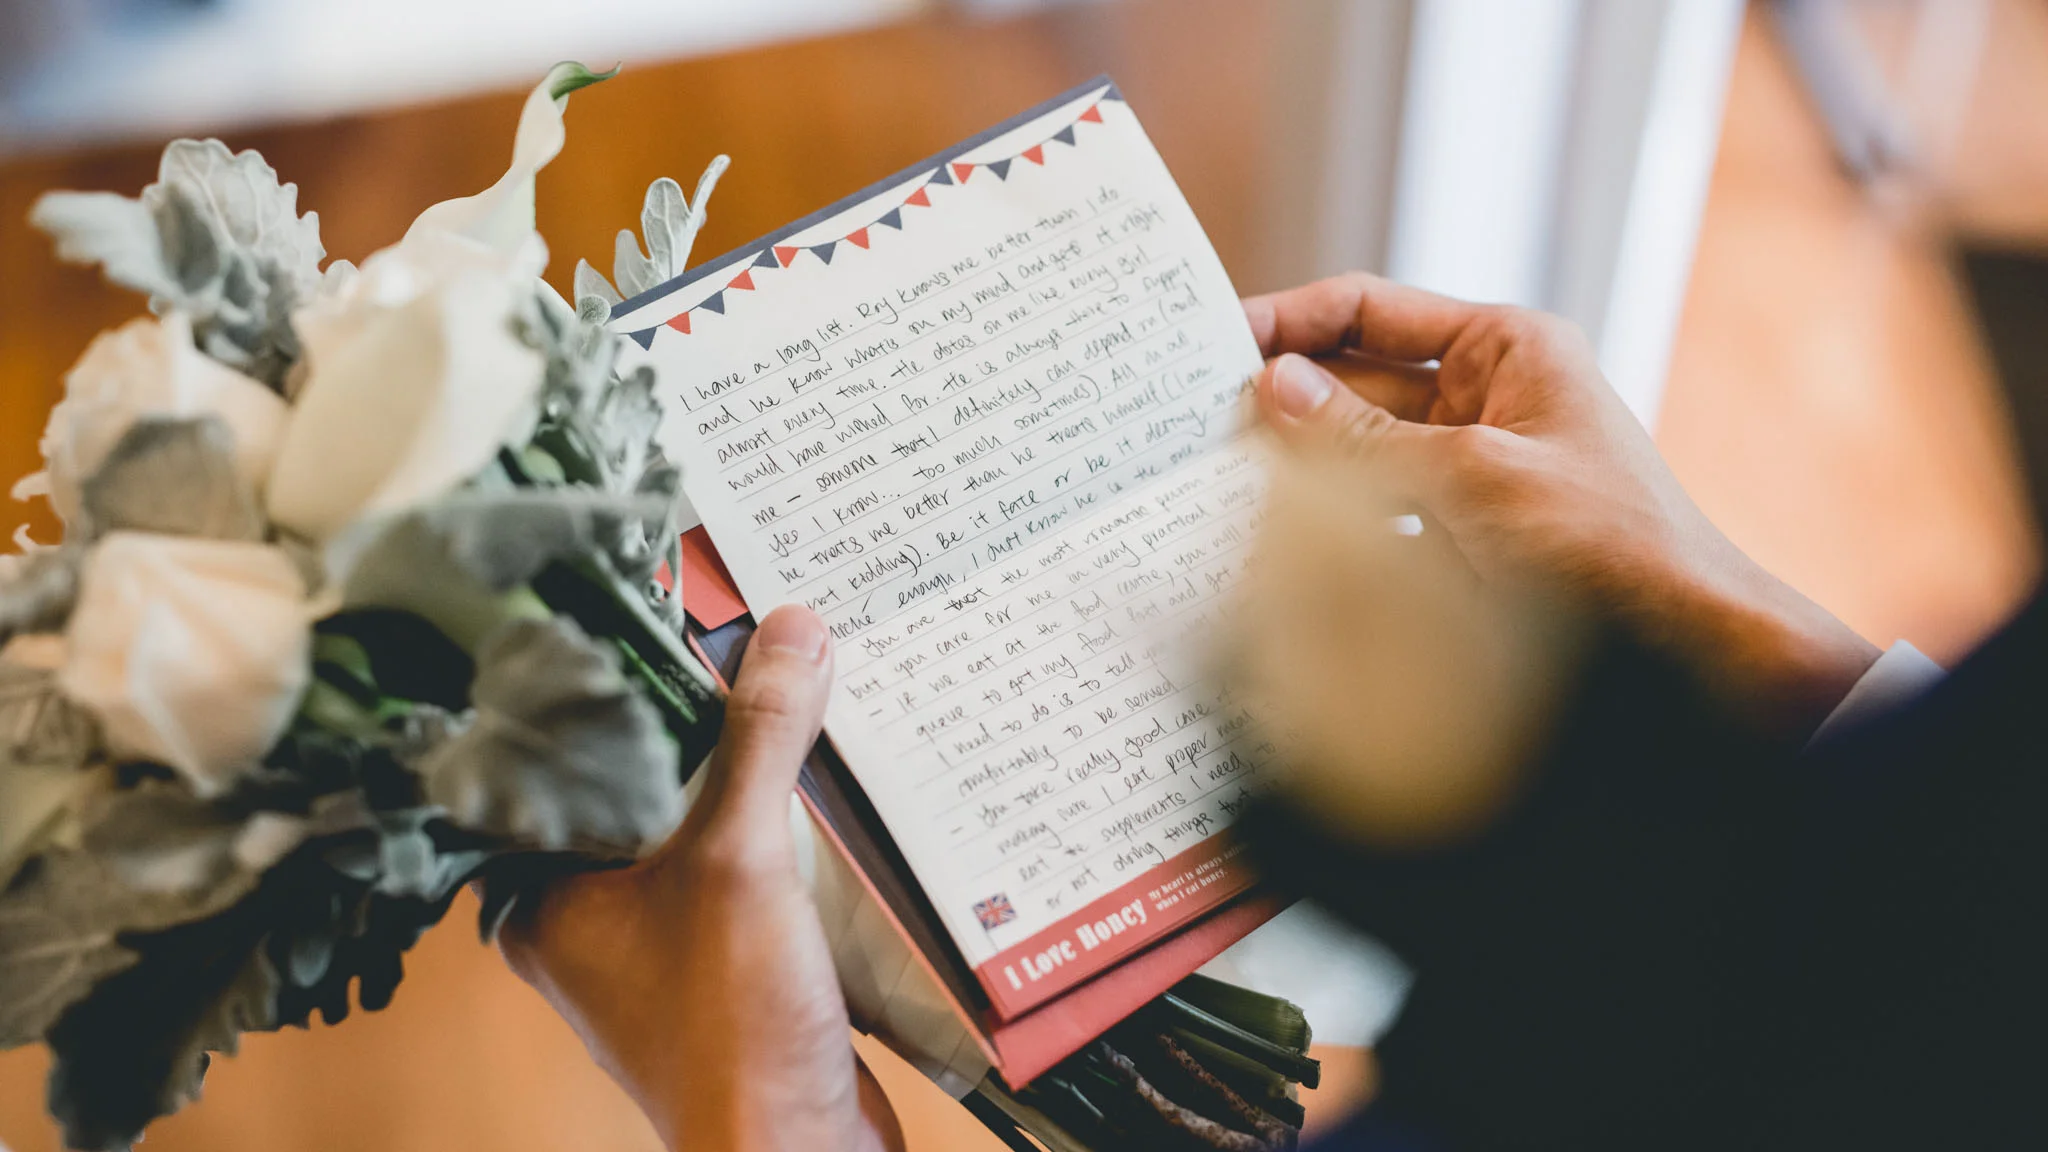 I have a long list. Roy knows me better than I do
and he know what's on my mind and gets it right
almost every time. He dotes on me like every girl
would have wished for. He is always there to support
me - someone that I definitely can depend on (and
yes I know... too much sometimes). All in all,
he treats me better than he treats himself (I am
not kidding). Be it fate or be it destiny,
cliché enough, I just know he is the one.
You are the most romantic person ever
but you care for me in very practical ways
- If we eat at the food centre, you will
queue to get my food first and get
I need to do is to tell you
comfortably to be served
- You take really good care of
making sure I eat proper meal
eat the supplements I need, to
or not doing things that
I Love Honey
My heart is always
When I eat honey.